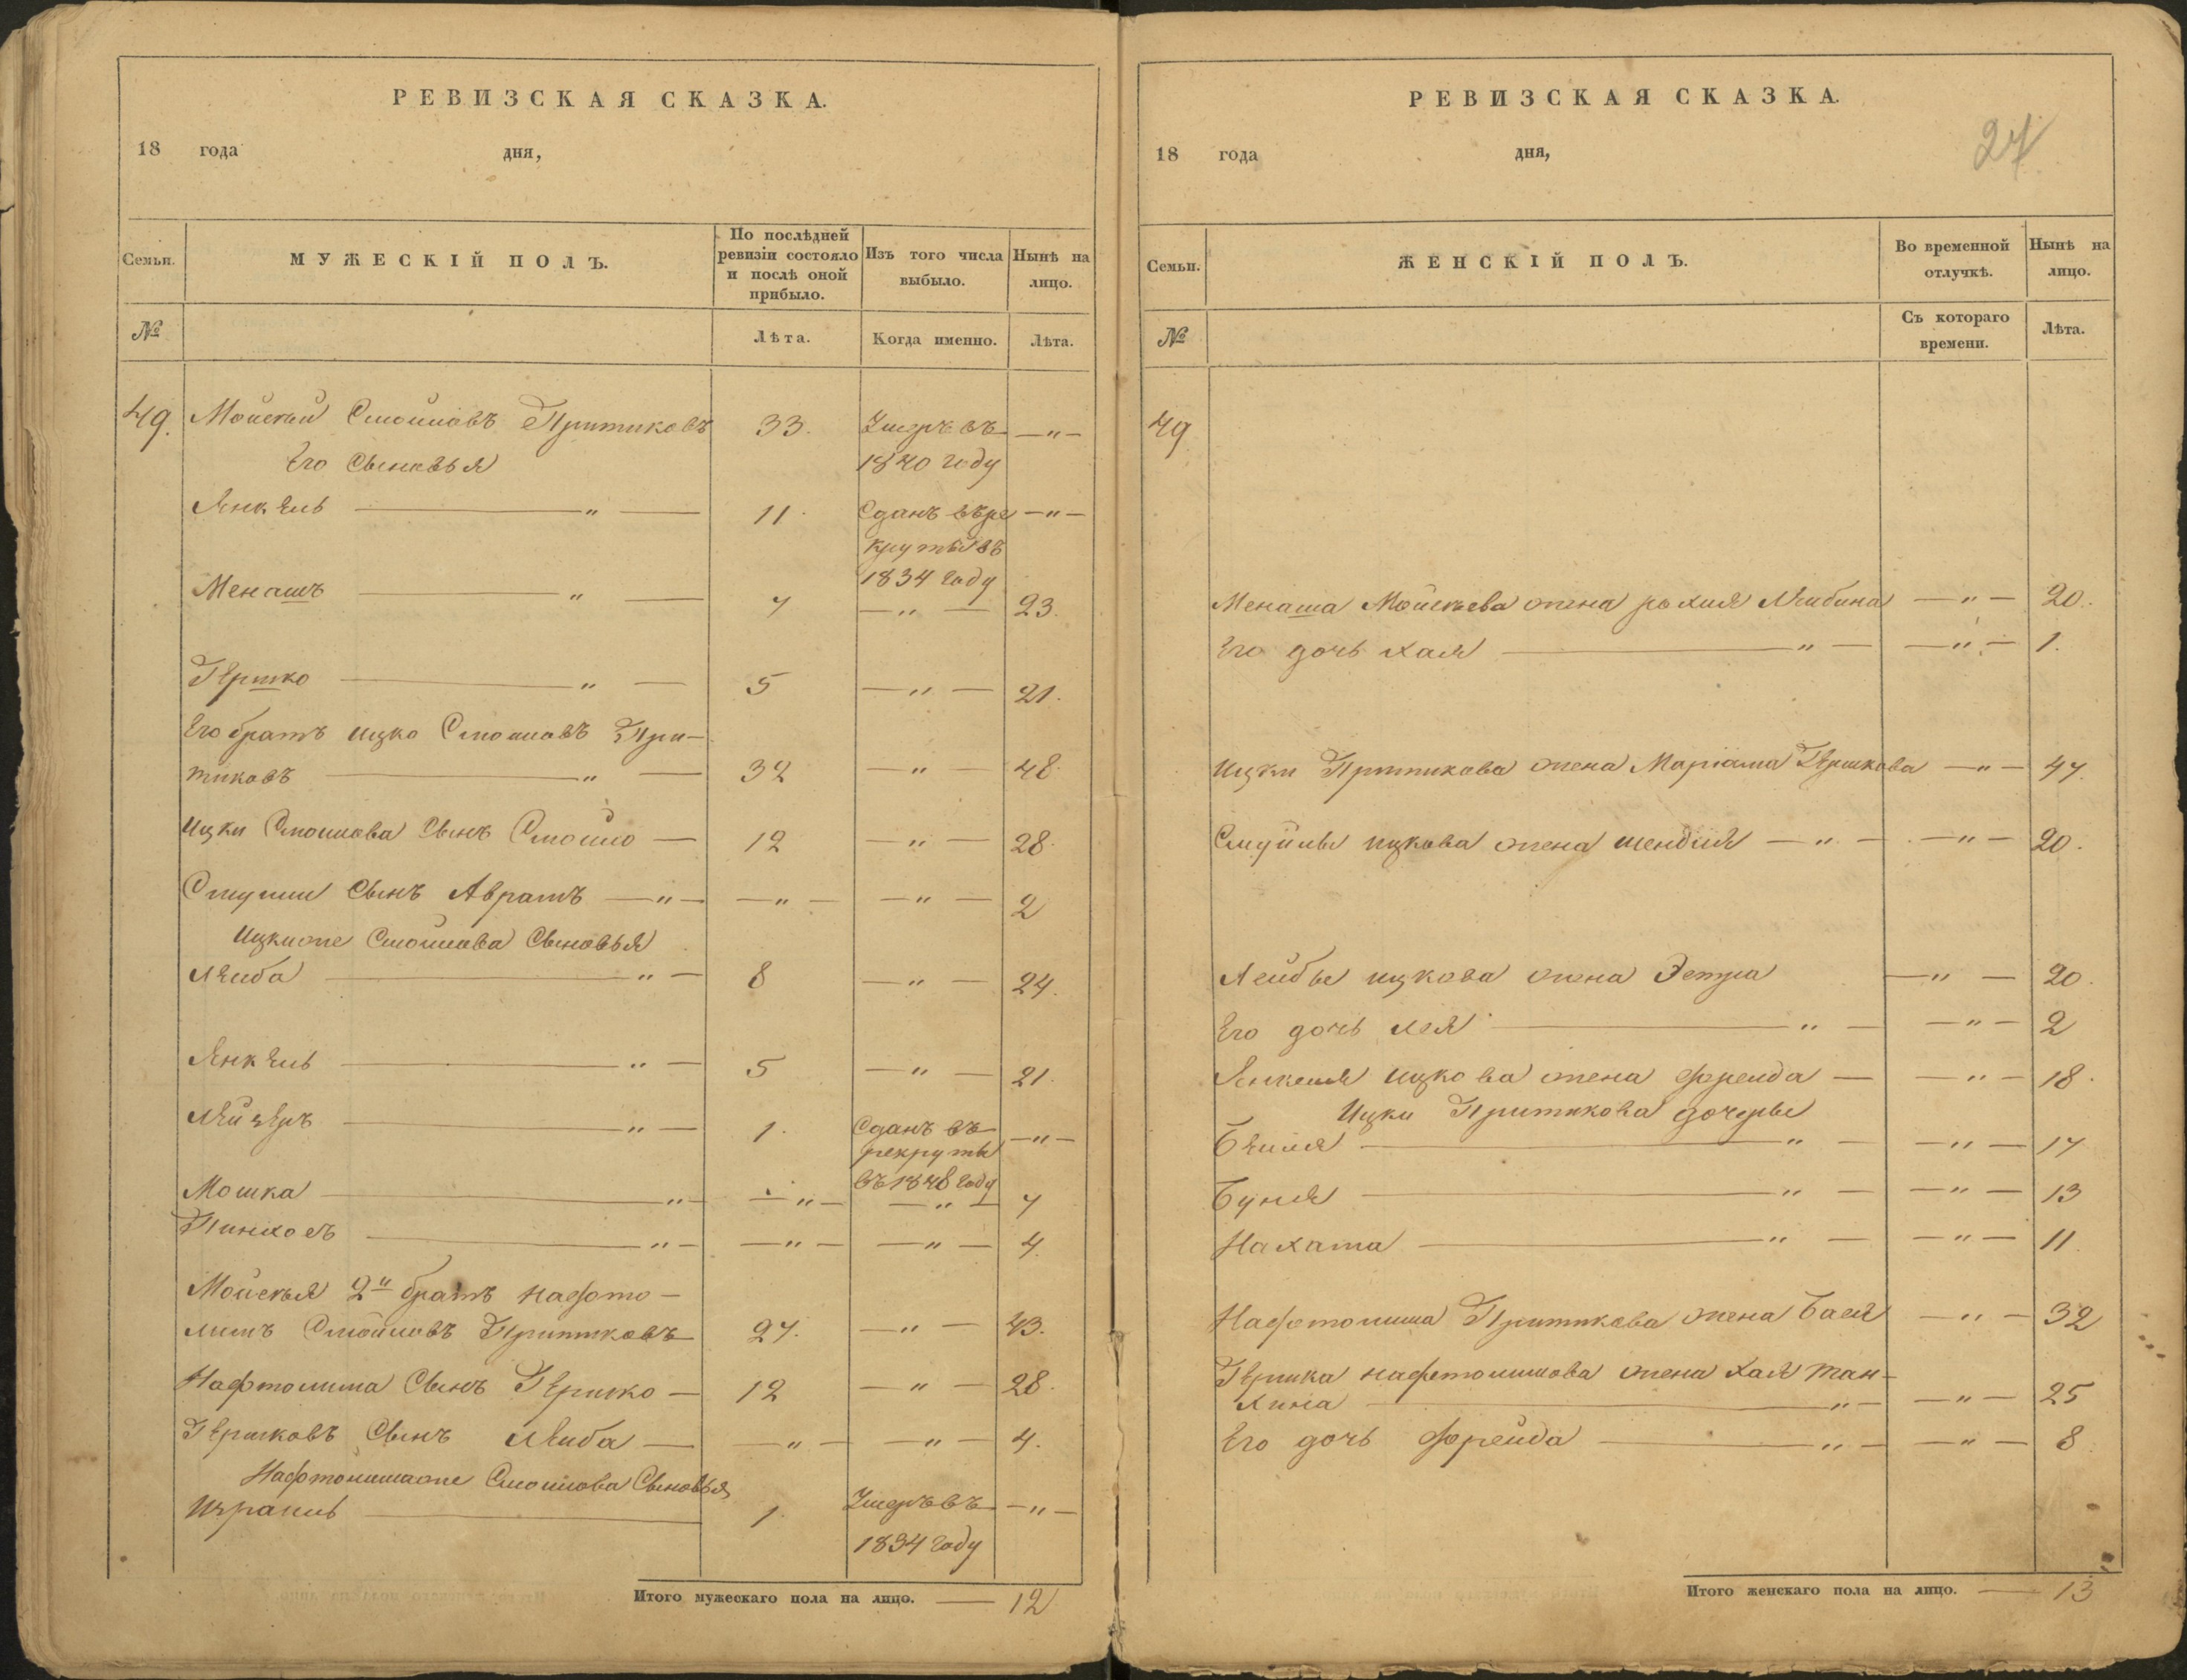 РЕВИЗСКАЯ СКАЗКА.
18 года дня,
Семьи.
МУЖЕСКІЙ ПОЛЪ.
По послѣдней ревизіи состояло и послѣ оной прибыло.
Изъ того числа выбыло.
Нынѣ на лицо.
№
Лѣта.
Когда именно.
Лѣта.
49. Мойскей Смойловъ Притиковъ 33. Умеръ въ —"—
Его Сыновья 1840 году
Янкель — " — 11. Сданъ въре —"—
круты въ
1834 году
Менашъ — " — 7 —"— 23.
Гершко — " — 5 —"— 21.
Его братъ ицко Смойловъ При-
тиковъ — " — 32 —"— 48.
Ицки Смойлова Сынъ Смойло — 12 —"— 28.
Смуйли Сынъ Аврамъ —"— —"— —"— 2
Ицкиоже Смойлова Сыновья
Лейба — " — 8 —"— 24.
Янкель — " — 5 —"— 21.
Лейзеръ — " — 1. Сданъ въ —"—
рекруты
въ 1848 году
Мошка — " — —"— —"— 7
Пинхосъ — " — —"— —"— 4.
Мойскья 2й братъ нафто-
лимъ Смойловъ Притиковъ 27. —"— 43.
Нафтолима Сынъ Гершко — 12 —"— 28.
Гершковъ Сынъ Лейба — —"— —"— 4.
Нафтолимаоже Смойлова Сыновья
Израиль — 1. Умеръ въ —"—
1834 году
Итого мужескаго пола на лицо. — 12
РЕВИЗСКАЯ СКАЗКА.
27
18 года дня,
Семьи.
ЖЕНСКІЙ ПОЛЪ.
Во временной отлучкѣ.
Нынѣ на лицо.
№
Съ котораго времени.
Лѣта.
49
Менаша Мойскева жена рохля Лейбина —"— 20.
Его дочь хая — " — —"— 1.
Ицки Притикова жена Маріама Гершкова —"— 47
Смуйлы ицкова жена шендля —"— —"— 20.
Лейбы ицкова жена Эстра —"— 20.
Его дочь лея — " — —"— 2
Янкеля ицкова жена фрейда — —"— 18.
Ицки Притикова дочеры
Бейля — " — —"— 17
Буня — " — —"— 13
Нахама — " — —"— 11.
Нафтолима Притикова жена Бася —"— 32
Гершка нафтолимова жена хая тан-
хина — " — —"— 25
Его дочь фрейда — " — —"— 8.
Итого женскаго пола на лицо. — 13